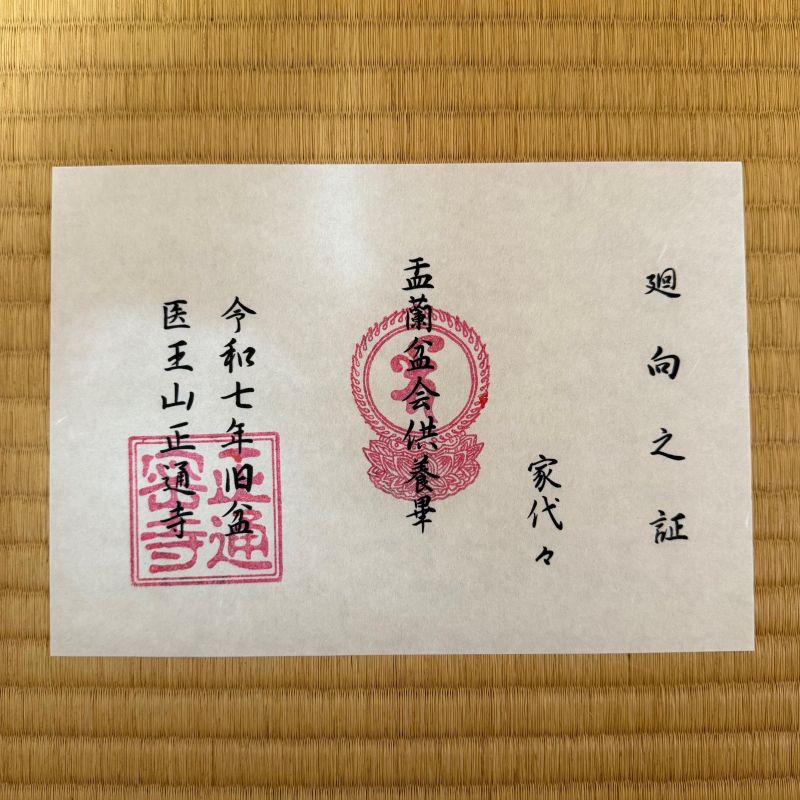 廻向之証
家代々
盂蘭盆会供養畢
令和七年旧盆
医王山正通寺
正通
密寺